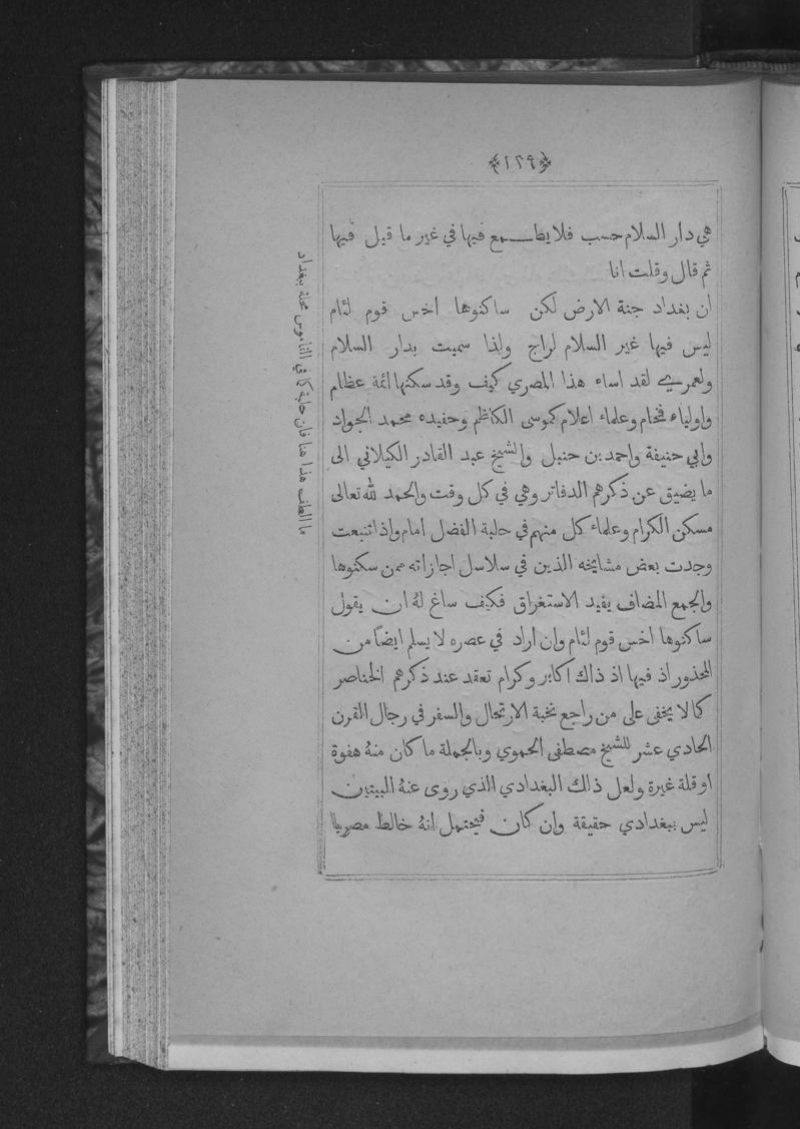 ﴿١٢٩﴾
هي دار السلام حسب فلا يطـــمع فيها في غير ما قيل فيها
ثم قال وقلت انا
ان بغداد جنة الارض لكن ساكنوها اخس قوم لئام
ليس فيها غير السلام لراج ولذا سميت بدار السلام
ولعمري لقد اساء هذا المصري كيف وقد سكنها ائمة عظام
واولياء فخام وعلماء اعلام كموسى الكاظم وحفيده محمد الجواد
وابي حنيفة واحمد بن حنبل والشيخ عبد القادر الكيلاني الى
ما يضيق عن ذكرهم الدفاتر وهي في كل وقت والحمد لله تعالى
مسكن الكرام وعلماء كل منهم في حلبة الفضل امام واذا تتبعت
وجدت بعض مشايخه الذين في سلاسل اجازاته ممن سكنوها
والجمع المضاف يفيد الاستغراق فكيف ساغ له ان يقول
ساكنوها اخس قوم لئام وان اراد في عصره لا يسلم ايضاً من
المحذور اذ فيها اذ ذاك اكابر وكرام تعقد عند ذكرهم الخناصر
كما لا يخفى على من راجع نخبة الارتحال والسفر في رجال القرن
الحادي عشر للشيخ مصطفى الحموي وبالجملة ما كان منه هفوة
او قلة غيرة ولعل ذلك البغدادي الذي روى عنه البيتين
ليس ببغدادي حقيقة وان كان فيحتمل انه خالط مصريا
ما الطف هذا هنا فان حلبة كما في القاموس محلة ببغداد